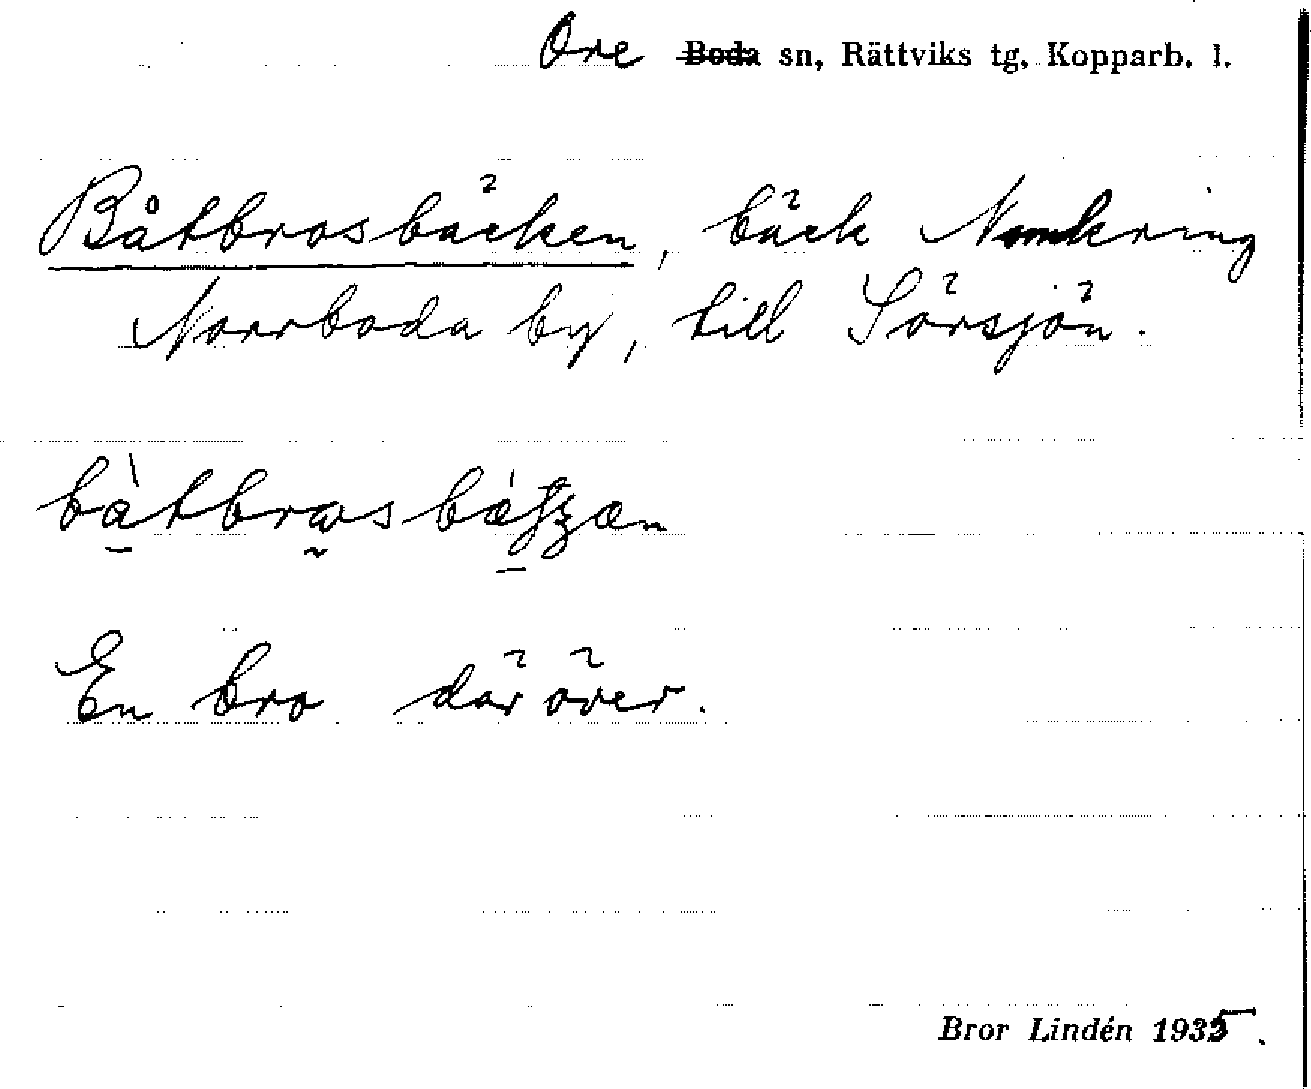 Ore Boda sn, Rättviks tg, Kopparb. l.
Båtbrosbäcken, bäck N omkring
Norrboda by, till Sörsjön.
En bro däröver.
Bror Lindén 1935.